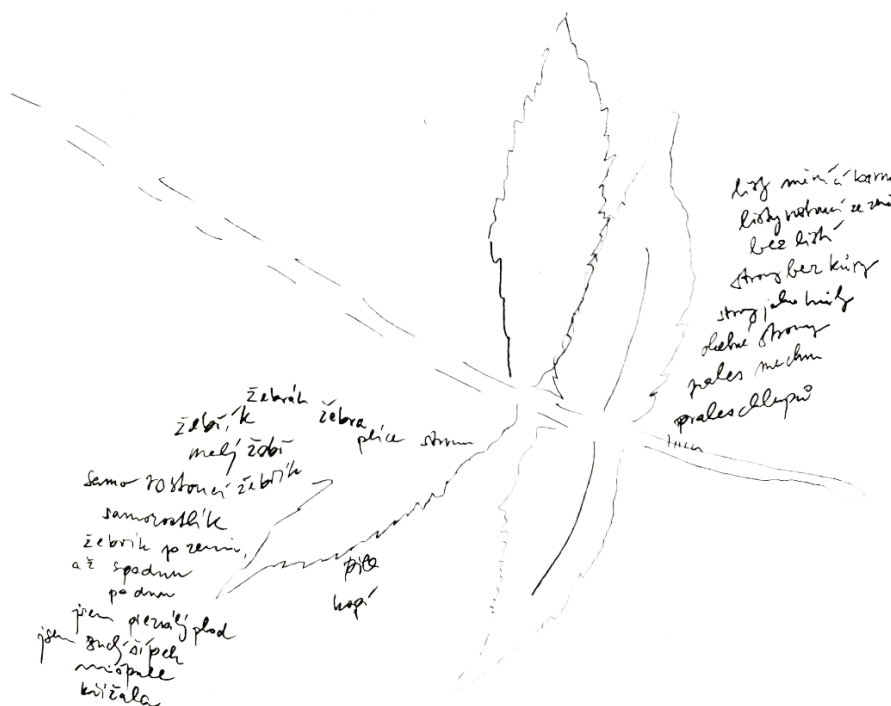 listy mění barvu
listy rostou ze
bez listí
stromy bez kůry
stromy jako
stromy
prales mechu
prales chlupů
žebrák žebra
žebř, k plíce strom
malý žebř
samo rostoucí žebřík
samorostlík
žebřík po zemi,
až spadnu
po dnu
jsem přezrálý plod
jsem suchý šípek
mišpule
křížala
pila
kopí